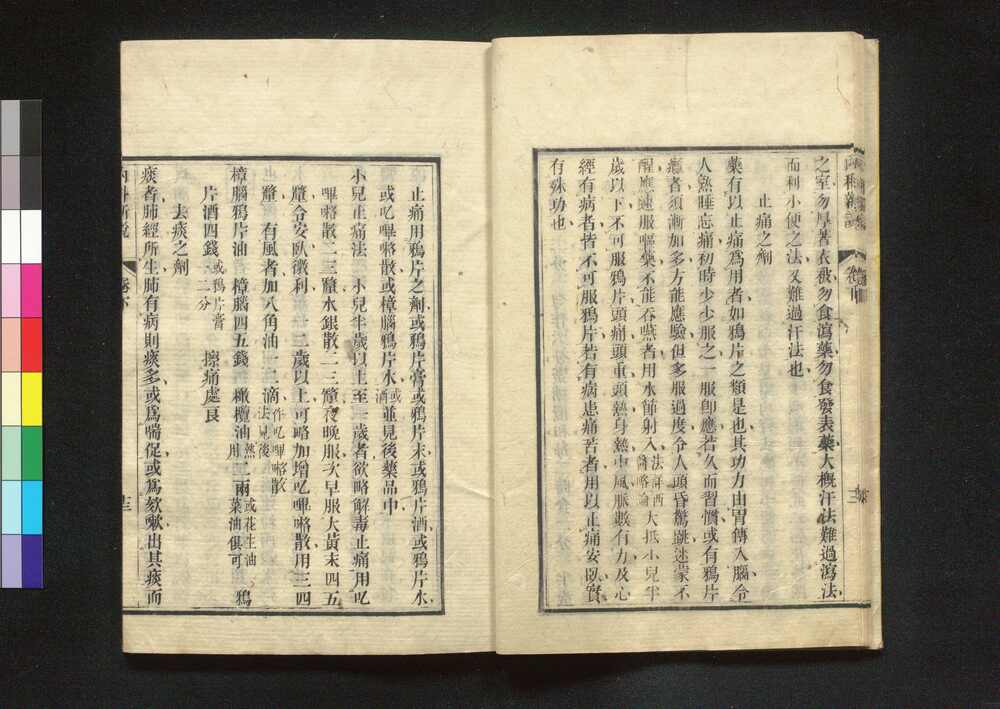 之室勿厚蓋衣被勿食瀉藥勿食發表藥大概汗法難過瀉法
而利小便之法又難過汗法也
止痛之劑
藥有以止痛爲用者如鴉片之類是也其功力由胃傳入腦令
人熟睡忘痛初時少少服之一服卽應若久而習慣或有鴉片
癮者須漸加多方能應驗但多服過度令人頭昏驚跳迷蒙不
醒應速服嘔藥不能吞嚥者用水節射入法詳西醫略論大抵小兒半
歲以下不可服鴉片頭痛頭重頭熱身熱中風脈數有力及心
經有病者皆不可服鴉片若有病患痛苦者用以止痛安臥實
有殊功也
止痛用鴉片之劑或鴉片膏或鴉片末或鴉片酒或鴉片水
或吃嗶嗠散或樟腦鴉片水或酒並見後藥品中
小兒止痛法 小兒半歲以上至一歲者欲略解毒止痛用吃
嗶嗠散二三釐水銀散二三釐夜晚服次早服大黃末四五
釐令安臥微利 二歲以上可略加增吃嗶嗠散用三四
釐 有風者加八角油一二滴作吃嗶嗠散法見後
樟腦鴉片油 樟腦四五錢 橄欖油用二兩或花生油熱菜油俱可 鴉
片酒四錢或鴉片膏一二分 擦痛處良
去痰之劑
痰者肺經所生肺有病則痰多或爲喘促或爲欬嗽出其痰而
內科新說
卷下